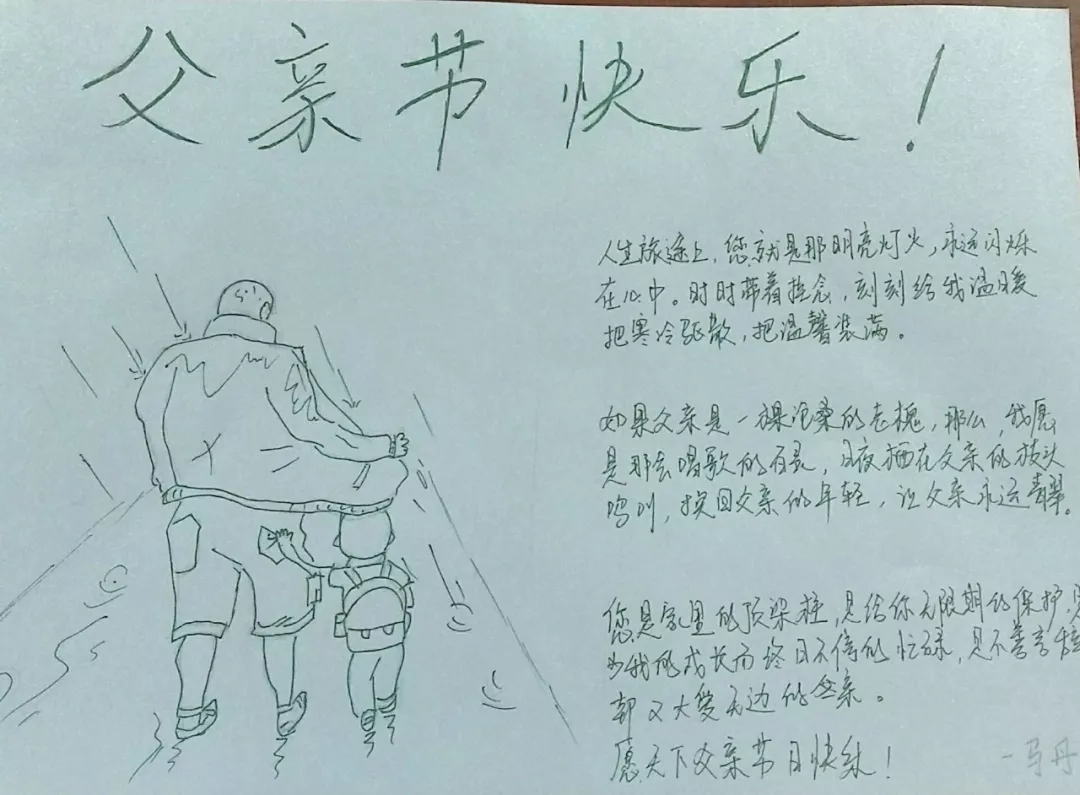 父亲节快乐!
人生旅途上,您就是那明亮灯火,永远闪烁
在心中。时时带着挂念,刻刻给我温暖
把寒冷驱散,把温馨装满。
如果父亲是一棵沧桑的老槐,那么,我愿
是那会唱歌的百灵,日夜栖在父亲的枝头
鸣叫,换回父亲的年轻,让父亲永远青翠。
您是家里的顶梁柱,是给你无限期的保护,是
为我的成长而终日不停的忙碌,是不善言
却又大爱无边的父亲。
愿天下父亲节日快乐!
-马丹